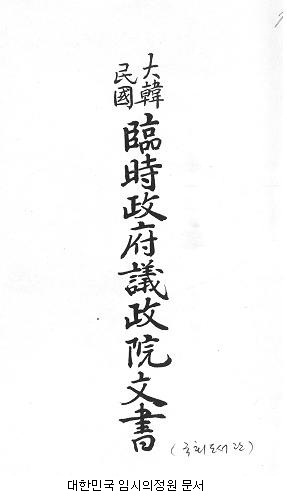 大韓
民國
臨時政府議政院文書
(국회도서관)
대한민국 임시의정원 문서